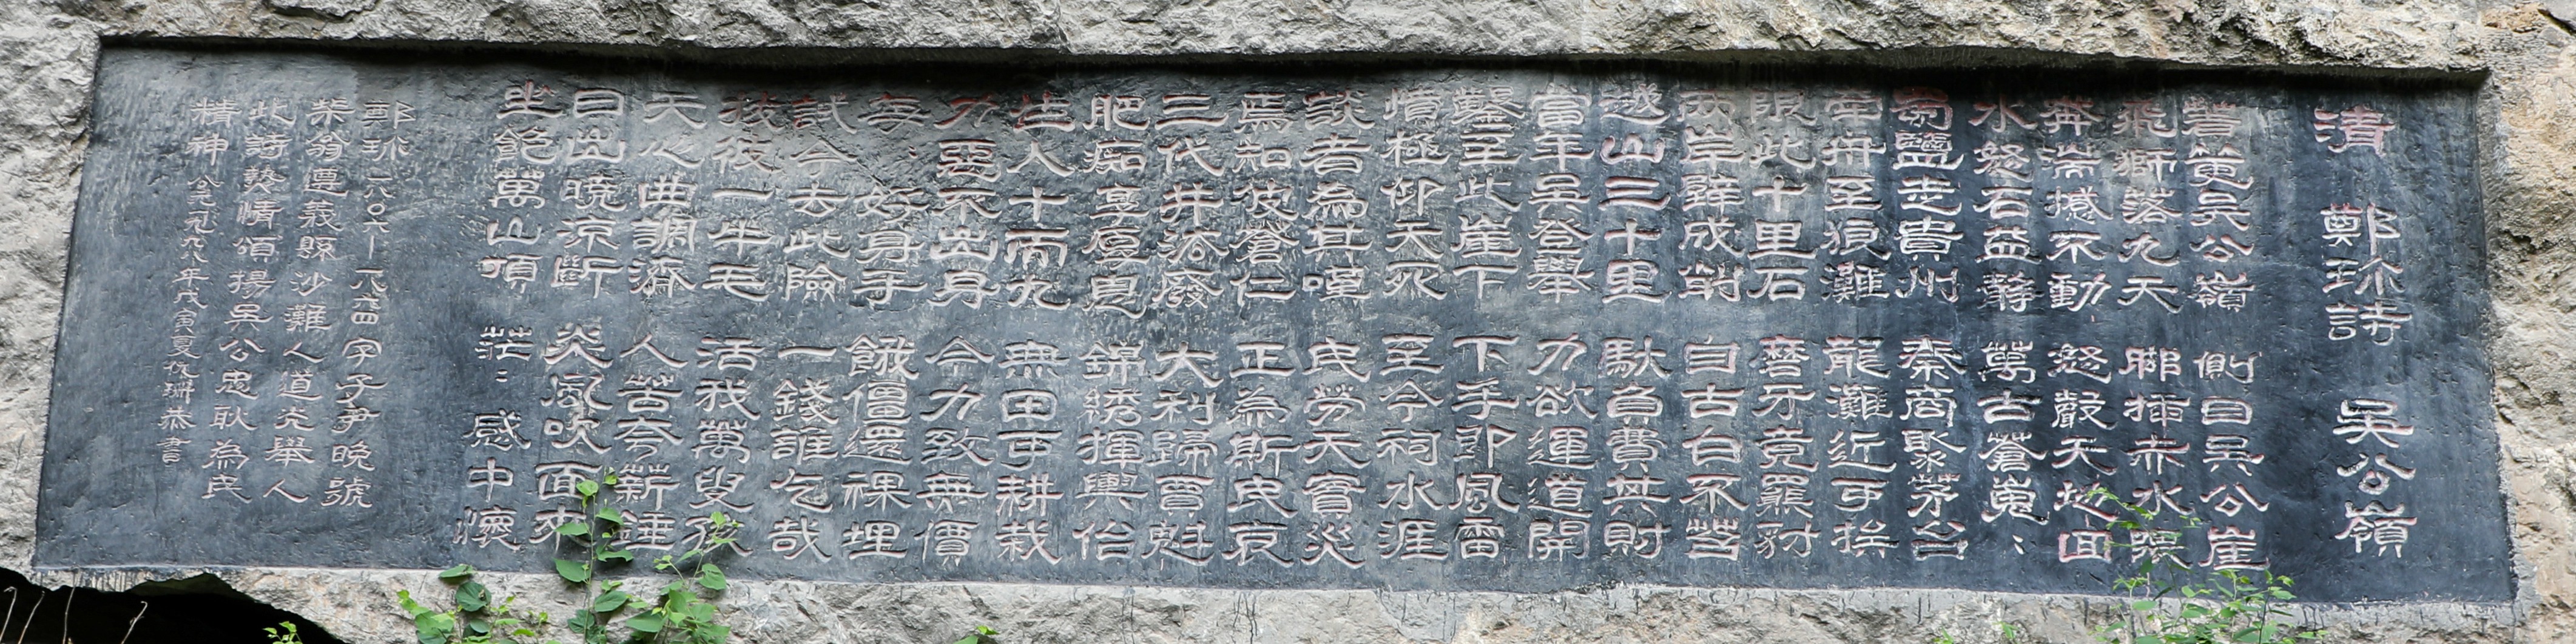 清 鄭珎詩 吳公嶺
著吳公嶺 側目吳公崖
飛獅落九天 腳插赤水隈
奔湍撼不動 怒聲天地回
水怒石益靜 萬古蒼嵬:
蜀鹽走貴州 秦商聚茅台
牽舟至狼灘 龍灘近可挨
限此十里石 磨牙竟羆豺
兩岸壁成削 自古白不苔
越山三十里 馱負費其財
當年吳登舉 力欲運道開
鑿至此崖下 下手即風雷
憤極仰天死 至今祠水涯
談者為其嘆 民勞天實災
焉知彼蒼仁 正為斯民哀
三代井法廢 大利歸賈魁
肥痴享厚息 錦綉揮輿佁
生人十而九 無田可耕栽
力惡不出身 今力致無價
每: 好身手 餓僵還裸埋
試令去此險 一錢誰乞哉
拔彼一牛毛 活我萬叟孩
天心曲調濟 人苦夸薪錘
日出曉涼斷 炎風吹面來
坐飽萬山頂 茫: 感中懷
鄭珎一八〇六—一八六四字子尹晚號
柴翁遵義縣沙灘人道光舉人
此詩熱情頌揚吳公忠耿為民
精神 公元一九九八年戊寅夏珊恭書